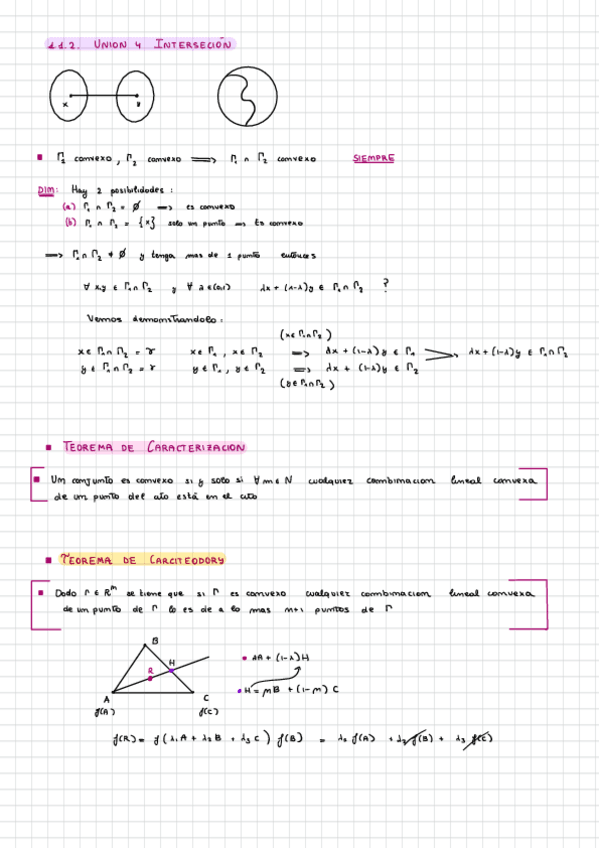 1.1.2. UNION Y INTERSECIÓN
x y
Γ₁ convexo, Γ₂ convexo ⟹ Γ₁ ∩ Γ₂ convexo SIEMPRE
DIM: Hay 2 posibilidades:
(a) Γ₁ ∩ Γ₂ = ∅ ⟹ es convexo
(b) Γ₁ ∩ Γ₂ = {x} solo un punto ⟹ Es convexo
⟹ Γ₁ ∩ Γ₂ ≠ ∅ y tenga mas de 1 punto entonces
∀ x,y ∈ Γ₁ ∩ Γ₂ y ∀ λ ∈ (0,1) λx + (1-λ)y ∈ Γ₁ ∩ Γ₂ ?
Vemos demonstrandolo:
(x ∈ Γ₁ ∩ Γ₂)
x ∈ Γ₁ ∩ Γ₂ = r x ∈ Γ₁, x ∈ Γ₂ ⟹ λx + (1-λ)y ∈ Γ₁ λx + (1-λ)y ∈ Γ₁ ∩ Γ₂
y ∈ Γ₁ ∩ Γ₂ = r y ∈ Γ₁, y ∈ Γ₂ ⟹ λx + (1-λ)y ∈ Γ₂
(y ∈ Γ₁ ∩ Γ₂)
TEOREMA DE CARACTERIZACION
Um conjunto es convexo si y solo si ∀ m ∈ N cualquier combinacion lineal convexa
de un punto del cito está en el cito
TEOREMA DE CARCITEODORY
Dado Γ ∈ Rᵐ se tiene que si Γ es convexo cualquier combinacion lineal convexa
de un punto de Γ lo es de a lo mas n+1 puntos de Γ
B
R H
λA + (1-λ)H
H = μB + (1-μ) C
A C
f(A) f(C)
f(R) = f(λ₁A + λ₂B + λ₃C) f(B) = λ₁ f(A) + λ₂ f(B) + λ₃ f(C)